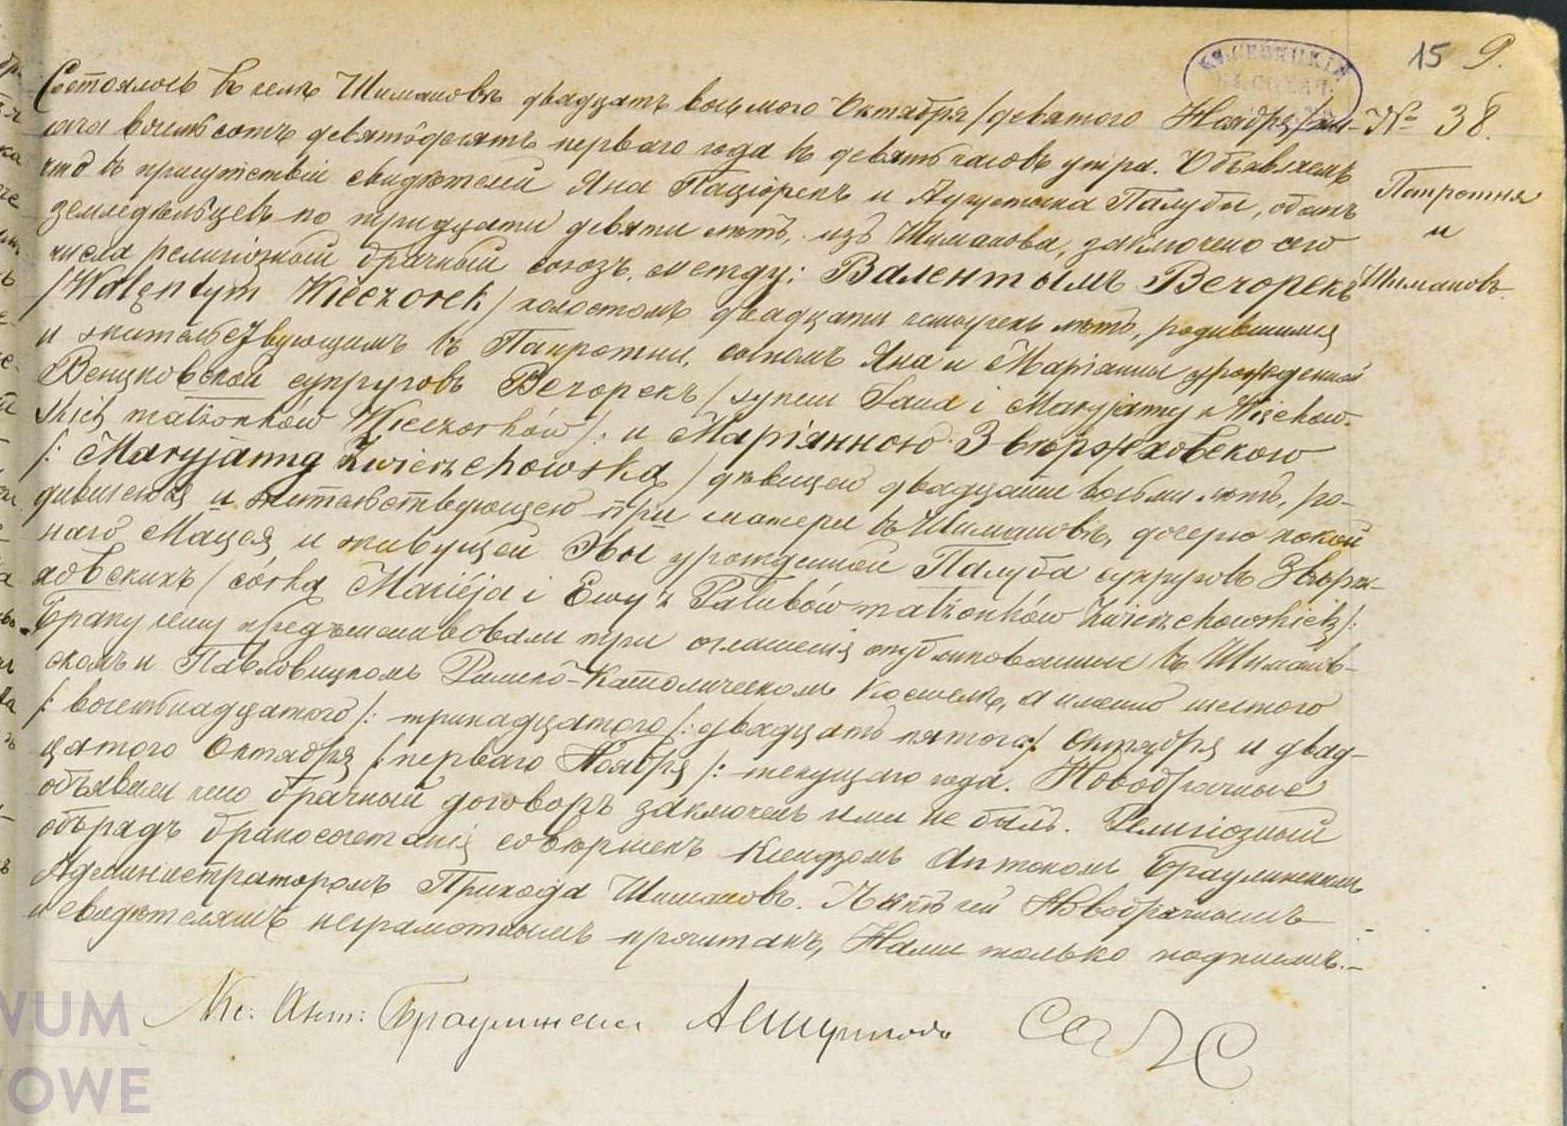 15 9.
№ 38.
Папротня
и
Шимановъ.
Состоялось въ селѣ Шимановѣ двадцать восьмого Октября /девятого Ноября/ ты-
сяча восемьсотъ девятьдесятъ перваго года въ девять часовъ утра. Объявляемъ
что въ присутствіи свидѣтелей Яна Паціорекъ и Августына Палубы, обоихъ
земледѣльцевъ по тридцати девяти лѣтъ, изъ Шиманова, заключено сего
числа религіозный брачный союзъ между: Валентымъ Вечорекъ
/Walentym Wieczorek/ холостомъ двадцати четырехъ лѣтъ, родившимся
и жительствующимъ въ Папротни, сыномъ Яна и Маріанны урожденной
Венцковской супруговъ Вечорекъ / synem Jana i Maryjanny z Więckow-
skich małżonków Wieczorków/: и Маріянною Звержховскою
/: Maryjanną Zwierzchowską / дѣвицею двадцати восьми лѣтъ, ро-
дившеюся и жительствующею при матери въ Шимановѣ, дочерью покой
наго Мацея и живущей Эвы урожденной Палуба супруговъ Звержх-
ховскихъ / córką Macieja i Ewy z Pałubów małżonków Zwierzchowskich/:
Браку сему предшествовали три оглашенія опубликованныя въ Шиманов-
скомъ и Павловицкомъ Римско-Католическомъ Костелѣ, а именно шестого
/: восемнадцатого/: тринадцатого /: двадцать пятого:/ Октября и двад-
цатого Октября /:перваго Ноября/: текущаго года. Новобрачные
объявили что брачный договоръ заключенъ ими не былъ. Религіозный
обрядъ бракосочетанія совершенъ Ксендзомъ Антономъ Браулинскимъ
Администраторомъ Прихода Шимановъ. Актъ сей Новобрачнымъ
и свидѣтелямъ неграмотнымъ прочитанъ, Нами только подписанъ.—
Кс: Ант: Браулински А С Ш П С А С